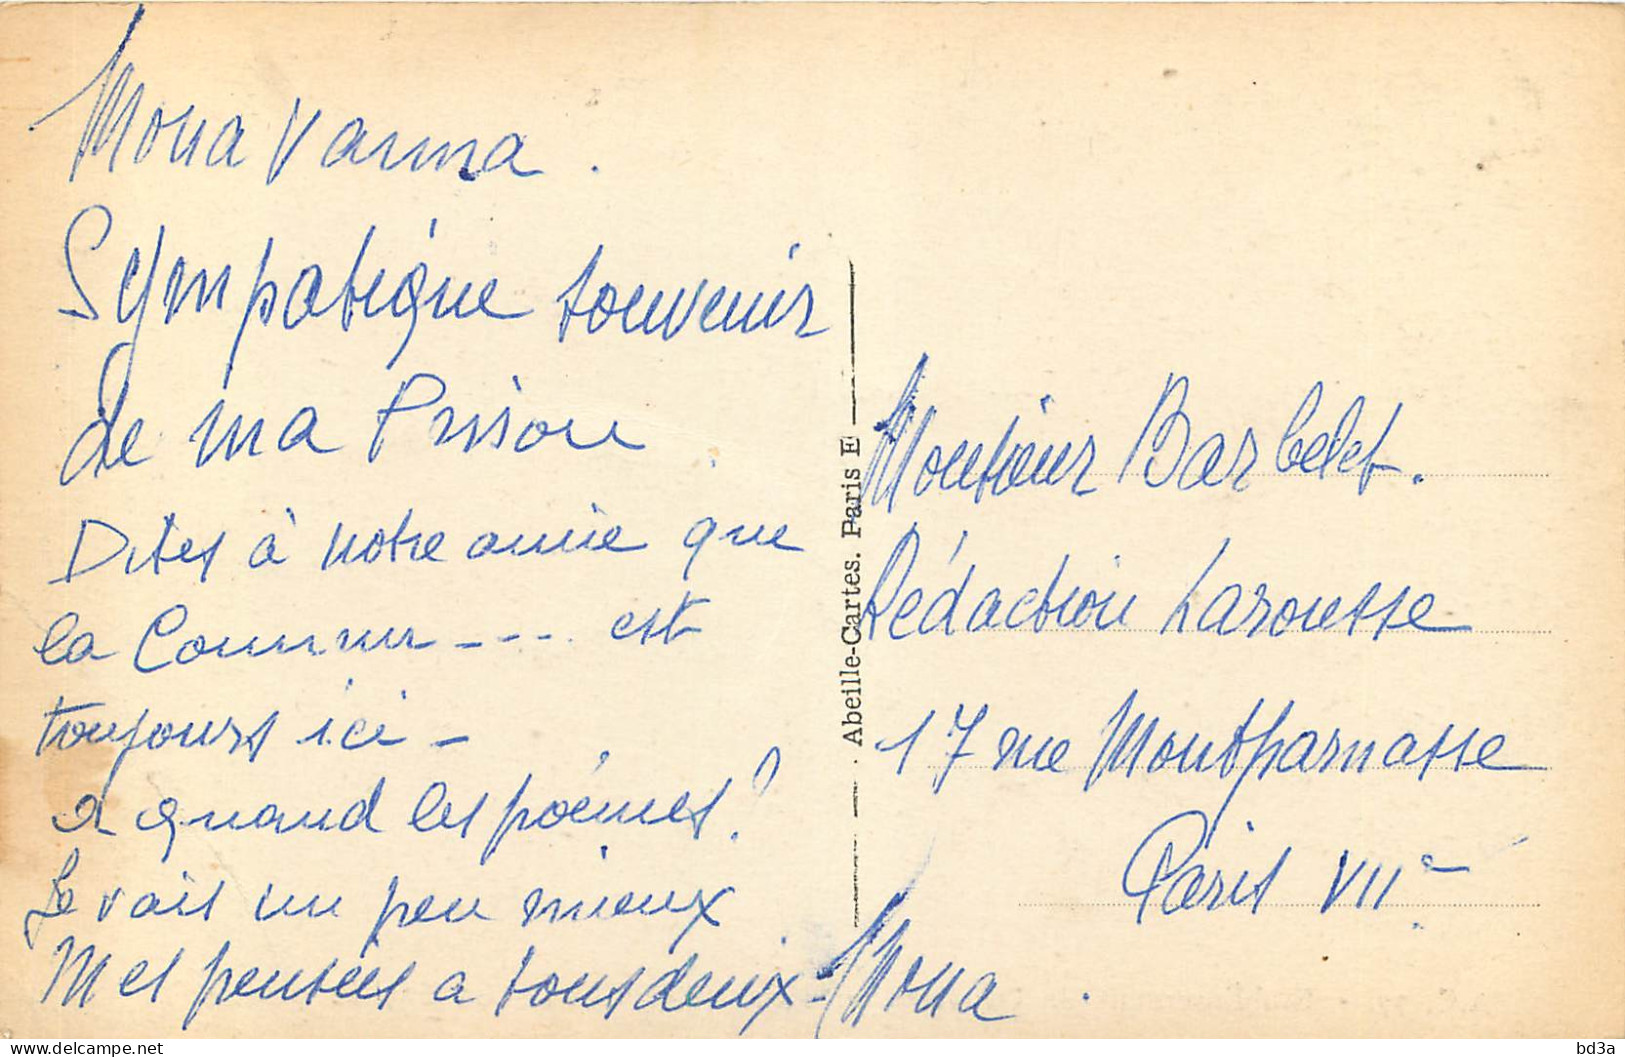 Mona Varma.
Sympatique souvenir
de ma Prison.
Dites à notre amie que
la Commu---- est
toujours ici -
a quand les poèmes?
Je vais un peu mieux
Mes pensées a tous deux - Mona.
Abeille-Cartes. Paris E
Monsieur Barbelet.
Rédaction Larousse
17 rue Montparnasse
Paris VIIe
bd3a